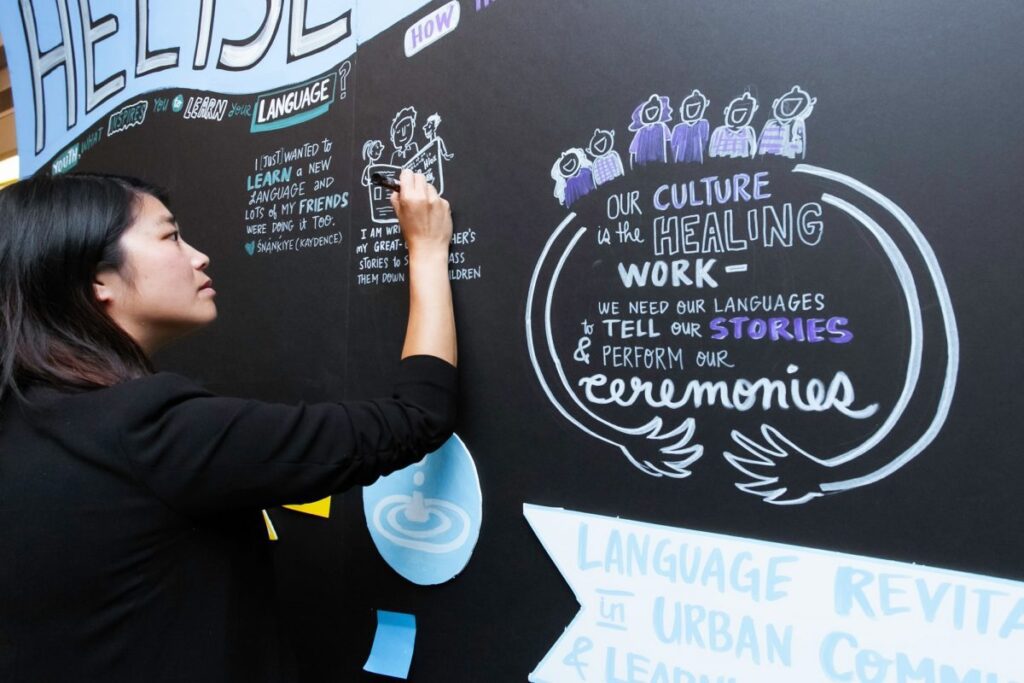 HOW
YOUTH, WHAT INSPIRES YOU to LEARN YOUR LANGUAGE?
I (JUST) WANTED TO
LEARN A NEW
LANGUAGE AND
LOTS OF MY FRIENDS
WERE DOING IT TOO.
(KAYDENCE)
I AM
MY GREAT-
STORIES TO
THEM DOWN CHILDREN
OUR CULTURE
is the HEALING
WORK –
WE NEED OUR LANGUAGES
to TELL OUR STORIES
& PERFORM OUR
ceremonies
LANGUAGE REVITA
in URBAN COMMU
& LEARN